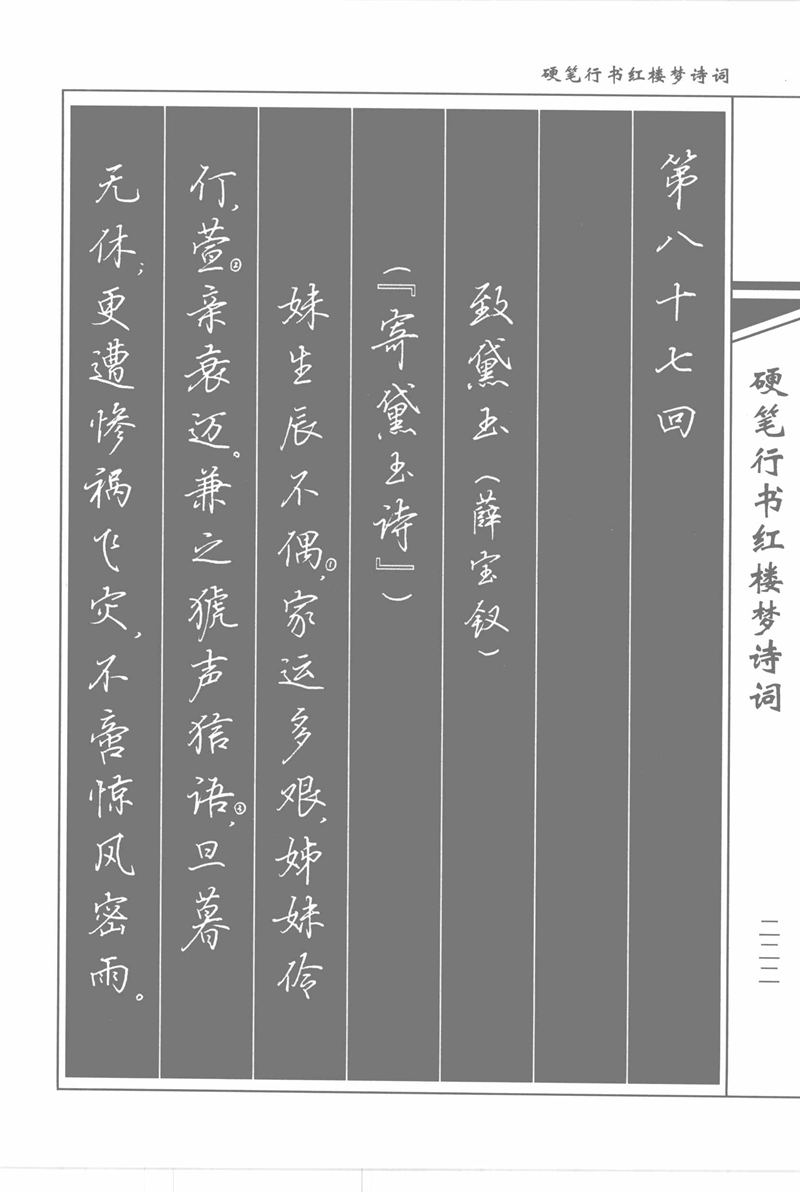 硬笔行书红楼梦诗词
硬笔行书红楼梦诗词
二二二
第八十七回
致黛玉(薛宝钗)
(『寄黛玉诗』)
妹生辰不偶①,家运多艰,姊妹伶
仃,萱②亲衰迈。兼之猇声狺语③,旦暮
无休;更遭惨祸飞灾,不啻惊风密雨。